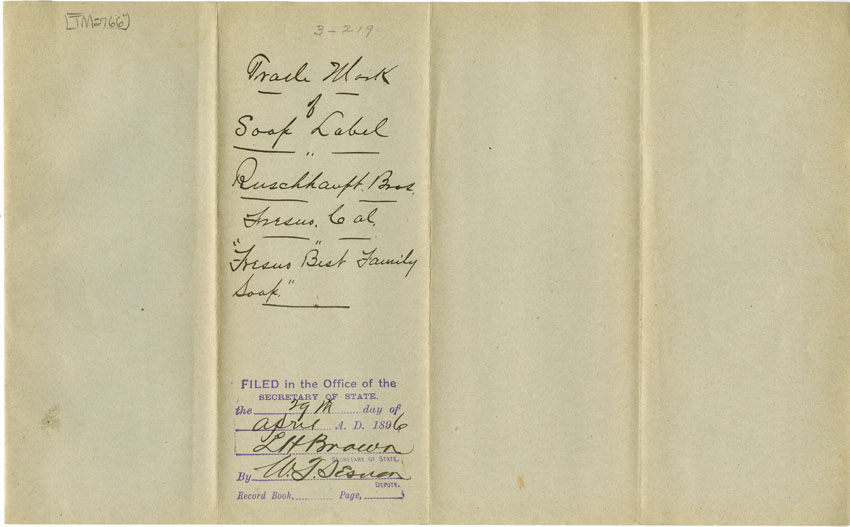 [TM2766]
3-219
Trade Mark
of
Soap Label
"
Ruschhaupt. Bros.
Fresno. Cal.
"Fresno Best Family
Soap."
FILED in the Office of the
SECRETARY OF STATE.
the 29th day of
April A. D. 1896
L H Brown
SECRETARY OF STATE.
By W. T.
DEPUTY.
Record Book, Page,